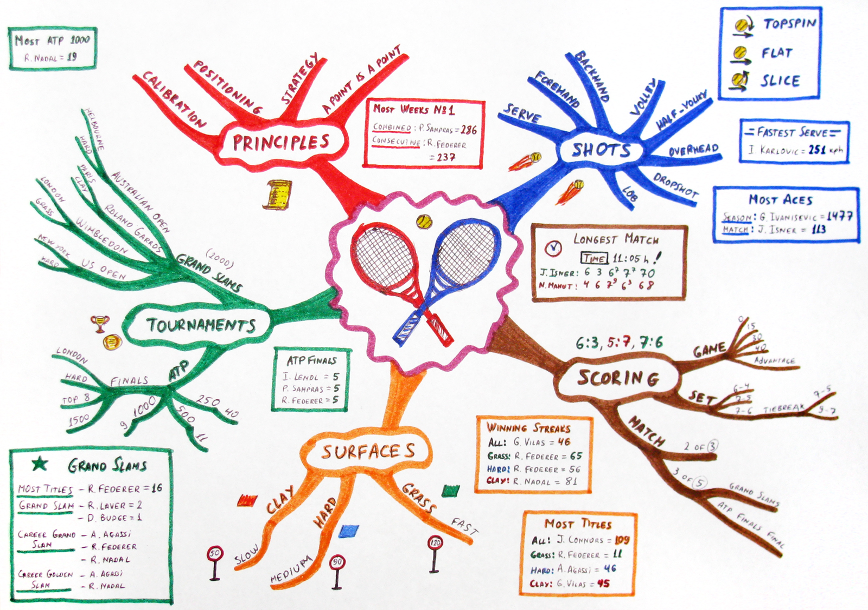 MOST ATP 1000
R. NADAL = 19
CALIBRATION
POSITIONING
STRATEGY
A POINT IS A POINT
PRINCIPLES
MOST WEEKS Nº1
COMBINED: P. SAMPRAS = 286
CONSECUTIVE: R. FEDERER
= 237
SERVE
FOREHAND
BACKHAND
VOLLEY
HALF-VOLLEY
OVERHEAD
DROPSHOT
LOB
SHOTS
TOPSPIN
FLAT
SLICE
= FASTEST SERVE =
I. KARLOVIC = 251 kph
MOST ACES
SEASON: G. IVANISEVIC = 1477
MATCH: J. ISNER = 113
LONGEST MATCH
TIME 11:05 h!
J. ISNER: 6 3 6⁷ 7⁷ 70
N. MAHUT: 4 6 7⁹ 6³ 68
MELBOURNE
HARD
AUSTRALIAN OPEN
PARIS
CLAY
ROLAND GARROS
LONDON
GRASS
WIMBLEDON
NEW YORK
HARD
US OPEN
(2000)
GRAND SLAMS
TOURNAMENTS
ATP
LONDON
HARD
TOP 8
1500
FINALS
1000
9
500
11
250
40
ATP FINALS
I. LENDL = 5
P. SAMPRAS = 5
R. FEDERER = 5
6:3, 5:7, 7:6
SCORING
GAME
0
15
30
40
ADVANTAGE
SET
6-4
7-5
7-6
TIEBREAK
7-5
9-7
MATCH
2 OF 3
3 OF 5
GRAND SLAMS
ATP FINALS FINAL
SURFACES
CLAY
SLOW
HARD
MEDIUM
GRASS
FAST
50
90
130
WINNING STREAKS
ALL: G. VILAS = 46
GRASS: R. FEDERER = 65
HARD: R. FEDERER = 56
CLAY: R. NADAL = 81
MOST TITLES
ALL: J. CONNORS = 109
GRASS: R. FEDERER = 11
HARD: A. AGASSI = 46
CLAY: G. VILAS = 45
GRAND SLAMS
MOST TITLES - R. FEDERER = 16
GRAND SLAM - R. LAVER = 2
- D. BUDGE = 1
CAREER GRAND - A. AGASSI
SLAM - R. FEDERER
- R. NADAL
CAREER GOLDEN - A. AGASSI
SLAM - R. NADAL